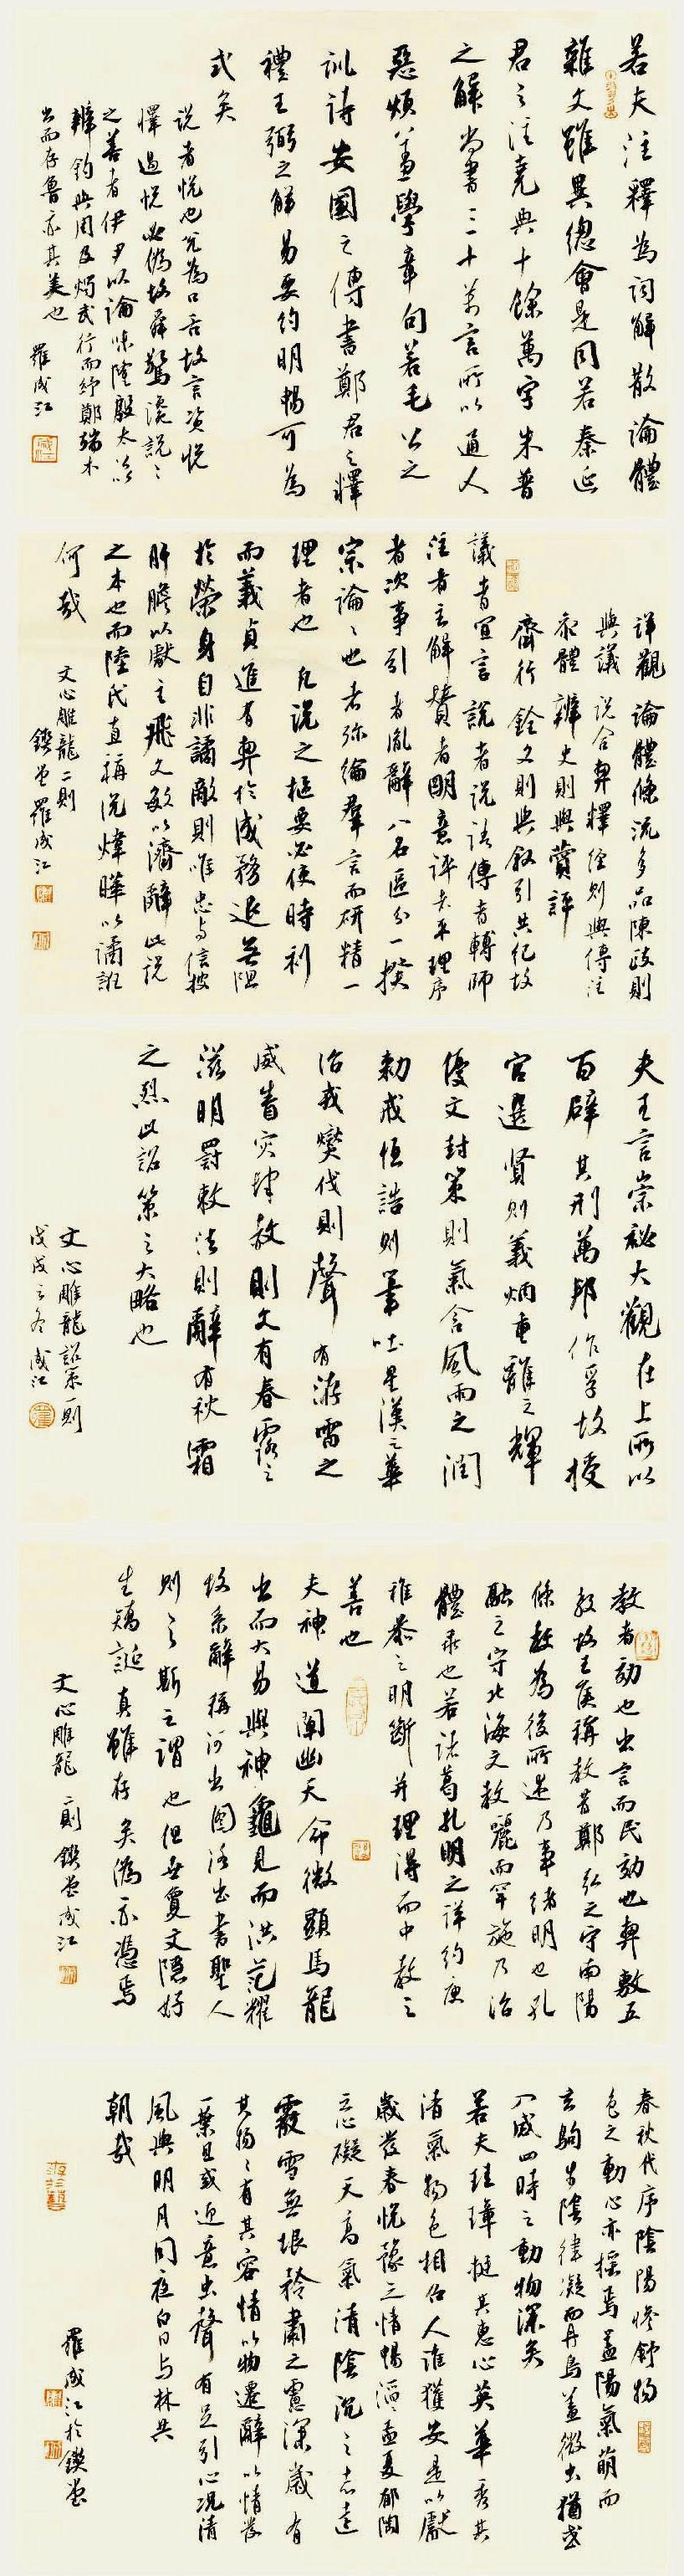 若夫注釋為詞解散論體
雜文雖異總會是同若秦延
君之注堯典十餘萬字朱普
之解尚書三十萬言所以通人
惡煩羞學章句若毛公之
訓詩安國之傳書鄭君之釋
禮王弼之解易要約明暢可為
式矣
說者悅也兌為口舌故言資悅
懌過悅必偽故舜驚讒說說
之善者伊尹以論味隆殷太公以
辨釣興周及燭武行而紓鄭端木
出而存魯亦其美也
羅成江
詳觀論體條流多品陳政則
與議說合契釋經則與傳注
參體辨史則與贊評
齊行銓文則與敘引共紀故
議者宜言說者說語傳者轉師
注者主解贊者明意評者平理序
者次事引者胤辭八名區分一揆
宗論論也者彌綸群言而研精一
理者也 凡說之樞要必使時利
而義貞進有契於成務退無阻
於榮身自非譎敵則唯忠與信披
肝膽以獻主飛文敏以濟辭此說
之本也而陸氏直稱說煒曄以譎誑
何哉
文心雕龍二則
羅成江
夫王言崇祕大觀在上所以
百辟其刑萬邦作孚故授
官選賢則義炳重離之輝
優文封策則氣含風雨之潤
敕戒恒誥則筆吐星漢之華
治戎燮伐則聲有洊雷之
威眚災肆赦則文有春露之
滋明罰敕法則辭有秋霜
之烈此詔策之大略也
文心雕龍詔策一則
戊戌之冬成江
教者効也出言而民効也契敷五
教故王侯稱教昔鄭弘之守南陽
條教為後所述乃事緒明也孔
融之守北海文教麗而罕施乃治
體乖也若諸葛孔明之詳約庾
稚恭之明斷并理得而中教之
善也
夫神道闡幽天命微顯馬龍
出而大易興神龜見而洪范耀
故系辭稱河出圖洛出書聖人
則之斯之謂也但世夐文隱好
生矯誕真雖存矣偽亦憑焉
文心雕龍二則 成江
春秋代序陰陽慘舒物
色之動心亦搖焉蓋陽氣萌而
玄駒步陰律凝而丹鳥羞微蟲猶或
入感四時之動物深矣
若夫珪璋挺其惠心英華秀其
清氣物色相召人誰獲安是以獻
歲發春悅豫之情暢滔滔孟夏郁陶
之心凝天高氣清陰沉之志遠
霰雪無垠矜肅之慮深歲有
其物物有其容情以物遷辭以情發
一葉且或迎意蟲聲有足引心況清
風與明月同夜白日與林共
朝哉
羅成江於